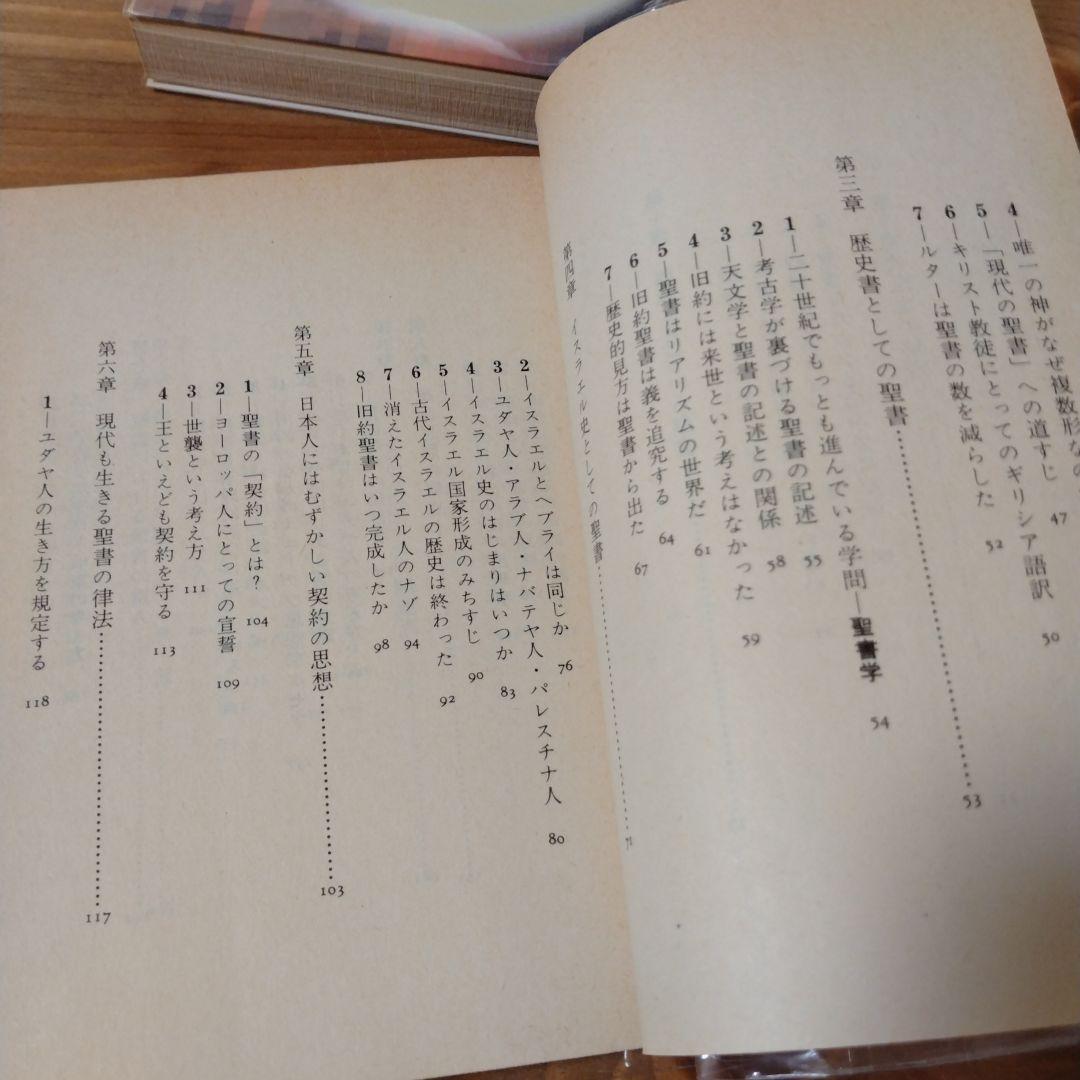 4—唯一の神がなぜ複数形なの
5—「現代の聖書」への道すじ 47
6—キリスト教徒にとってのギリシア語訳 50
7—ルターは聖書の数を減らした 52
第三章 歴史書としての聖書……………………53
1—二十世紀でもっとも進んでいる学問—聖書学 54
2—考古学が裏づける聖書の記述 55
3—天文学と聖書の記述との関係 58
4—旧約には来世という考えはなかった 59
5—聖書はリアリズムの世界だ 61
6—旧約聖書は義を追究する 64
7—歴史的見方は聖書から出た 67
第四章 イスラエル史としての聖書……………………71
2—イスラエルとヘブライは同じか 76
3—ユダヤ人・アラブ人・ナバテヤ人・パレスチナ人 80
4—イスラエル史のはじまりはいつか 83
5—イスラエル国家形成のみちすじ 90
6—古代イスラエルの歴史は終わった 92
7—消えたイスラエル人のナゾ 94
8—旧約聖書はいつ完成したか 98
第五章 日本人にはむずかしい契約の思想……………………103
1—聖書の「契約」とは? 104
2—ヨーロッパ人にとっての宣誓 109
3—世襲という考え方 111
4—王といえども契約を守る 113
第六章 現代も生きる聖書の律法……………………117
1—ユダヤ人の生き方を規定する 118